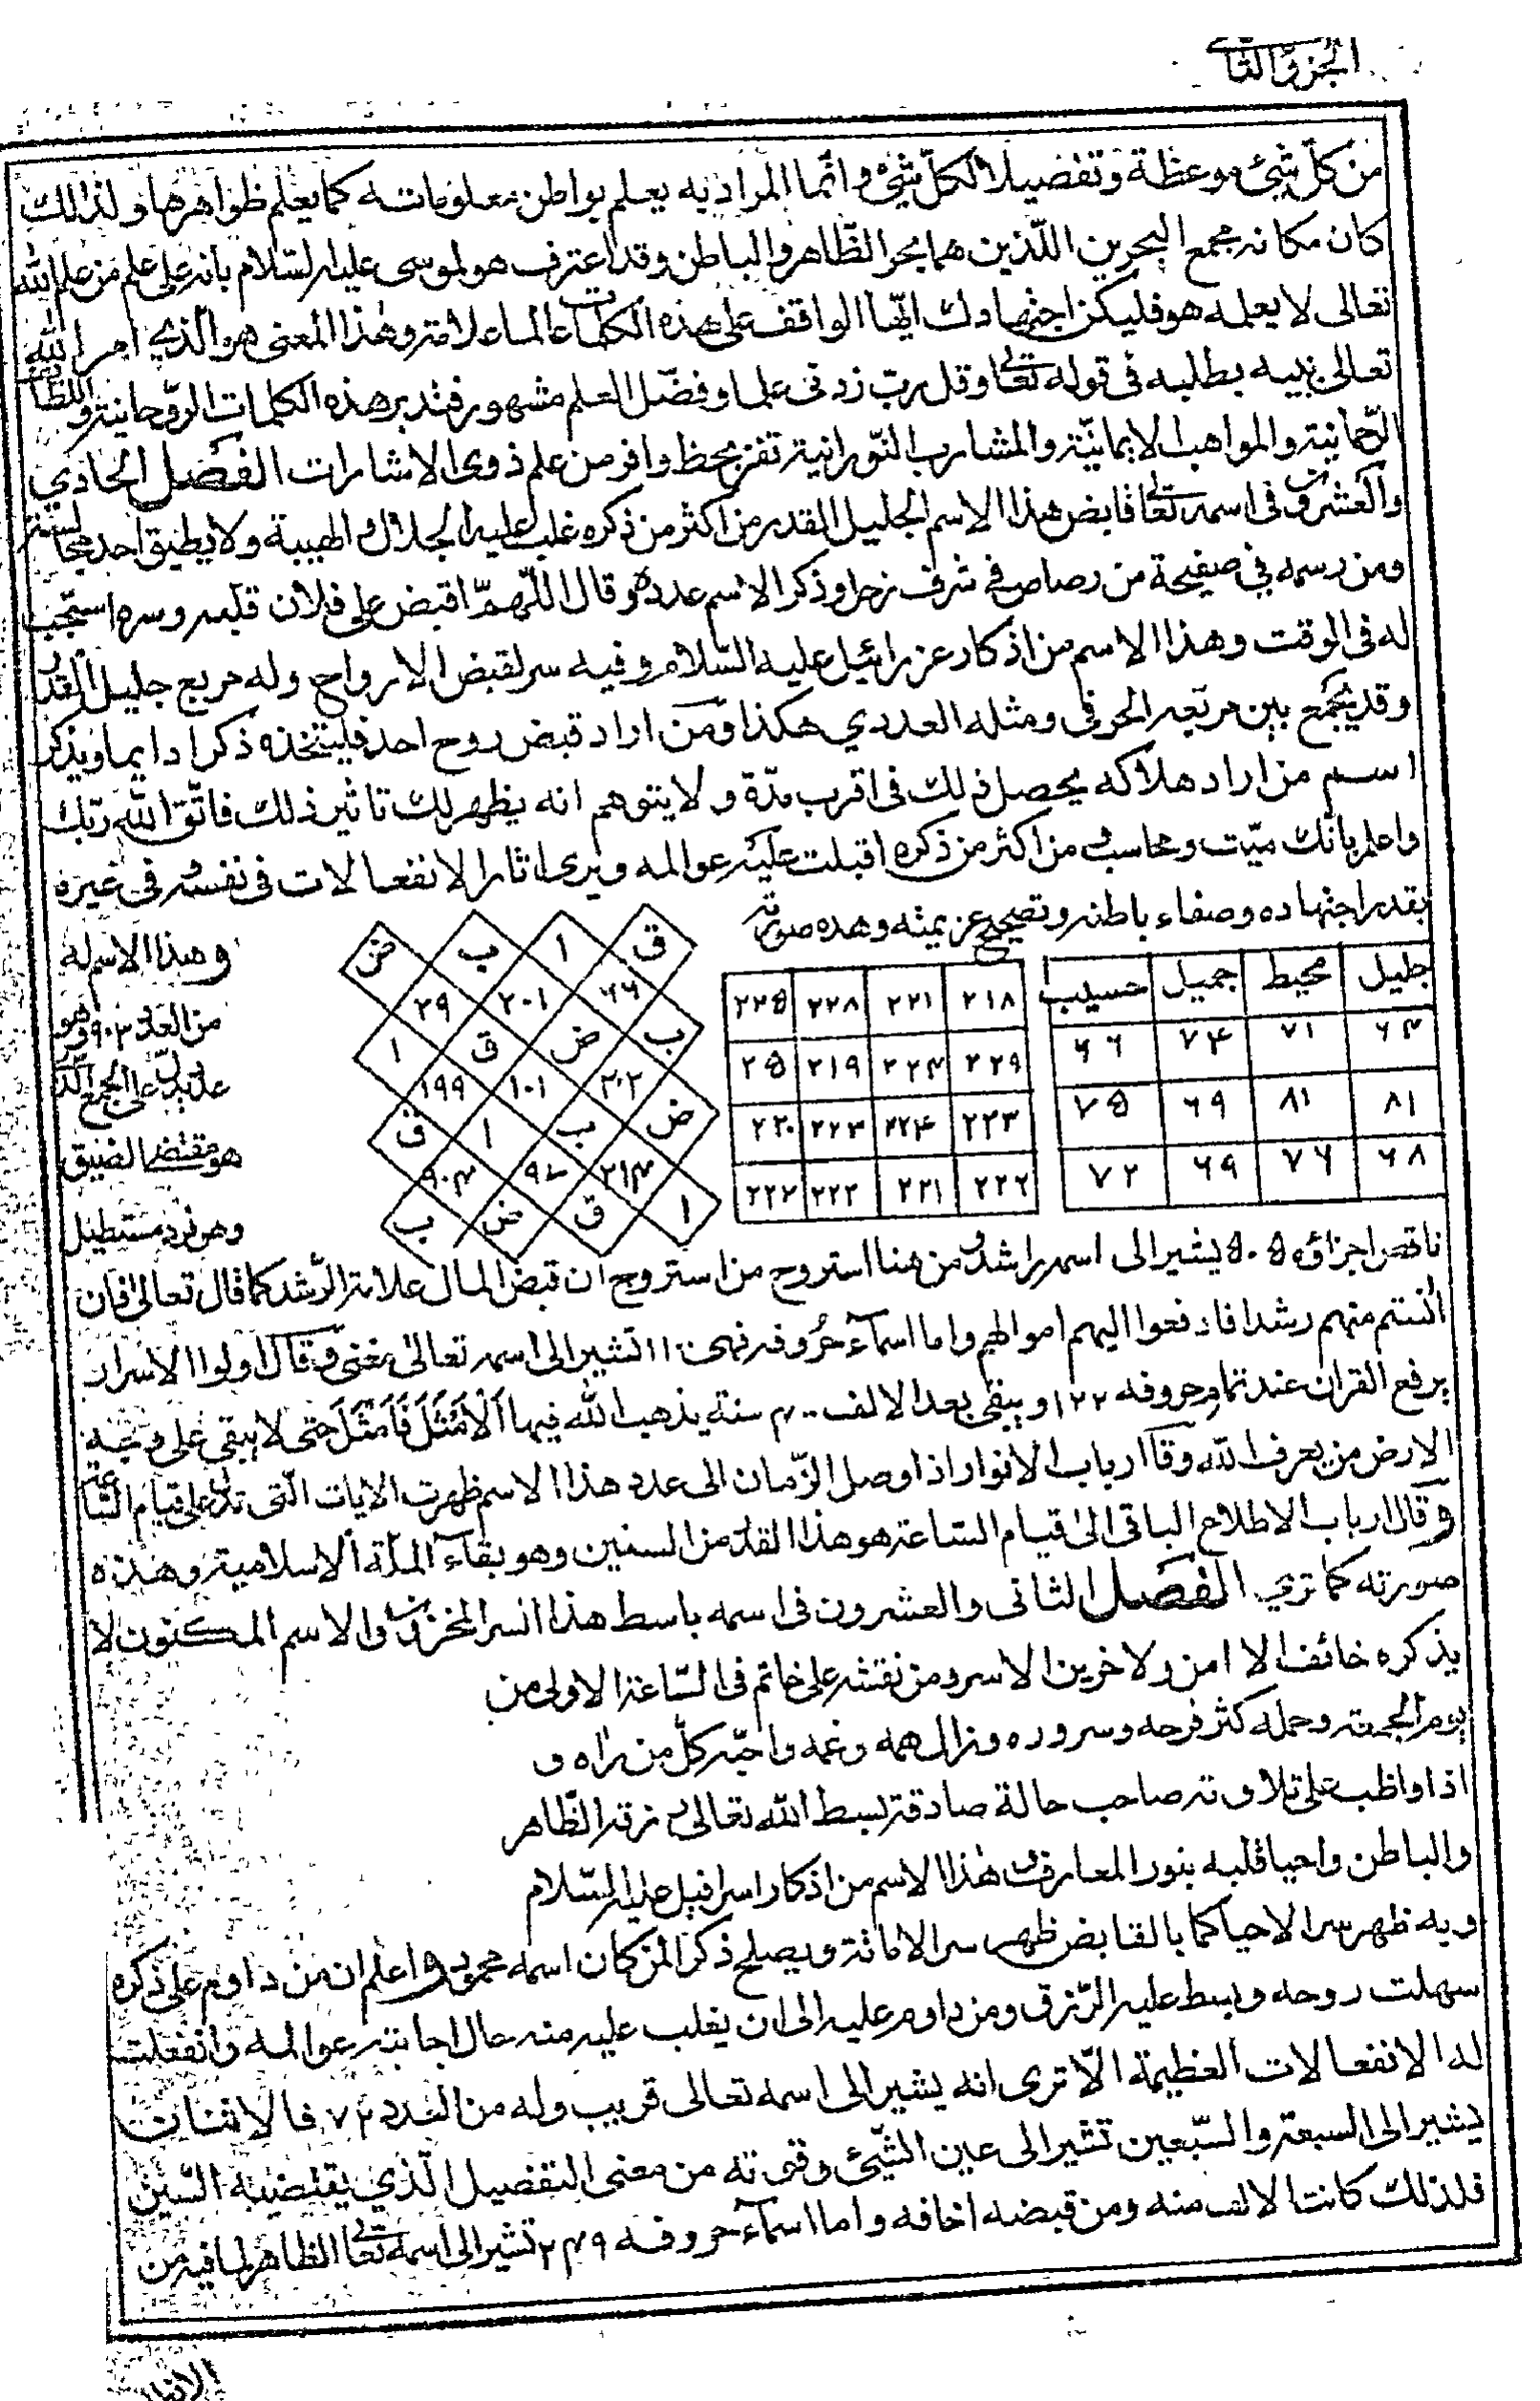 الجزؤ الثانى
من كلّ شئ موعظة وتفصيلا لكلّ شئ وانّما المراد به يعلم بواطن معلوماته كما يعلم ظواهرها ولذلك
كان مكانه مجمع البحرين اللّذين هما بحر الظّاهر والباطن وقد اعترف هو لموسى عليه السّلام بانه على علم من علم الله
تعالى لا يعلمه هو فليكن اجتهادك ايّها الواقف على هذه الكلمات عالما علامة وهذا المعنى هو الّذي امر الله
تعالى نبيه بطلبه فى قوله تعالى وقل ربّ زدنى علما وفضل العلم مشهور فتدبر هذه الكلمات الرّوحانية واللطائف
الرّحمانية والمواهب الايمانيّة والمشارب النّورانية تفز بحظ وافر من علم ذوى الاشارات الفصل الحادي
والعشرون فى اسمه تعالى قابض هذا الاسم الجليل القدر من اكثر من ذكره غلب عليه الجلال والهيبة ولا يطيق احد مجالسته
ومن رسمه في صفيحة من رصاص في شرف زحل وذكر الاسم عدده وقال اللّهمّ اقبض على فلان قلبه وسره استجيب
له فى الوقت وهذا الاسم من اذكار عزرائيل عليه السّلام وفيه سر لقبض الارواح وله مربع جليل القدر
وقد يجمع بين مربعه الحرفى ومثله العددي هكذا ومن اراد قبض روح احد فليتخذه ذكرا دايما ويذكر
اسم من اراد هلاكه يحصل ذلك فى اقرب مدّة ولا يتوهم انه يظهر لك تاثير ذلك فاتّق الله ربّك
واعلم بانّك ميّت ومحاسب من اكثر من ذكره اقبلت عليه عوالمه ويرى اثار الانفعالات فى نفسه وفى غيره
بقدر اجتهاده وصفاء باطنه وتصحيح عزيمته وهذه صورته
جليل محيط جميل حسيب
٦٣ ٧١ ٧۴ ٦٦
٨١ ٨١ ٦٩ ٧٥
٦٨ ٧٦ ٦٩ ٧٢
٢١٨ ٢٢١ ٢٢٨ ٢٣٥
٢٢٩ ٢٢۴ ٢١٩ ٢٥
٢٣٣ ٢٢۴ ٢٢٣ ٢٢٠
٢٢٦ ٢٢١ ٢٢٢ ٢٢٧
ق ا ب ض
٦٦ ٢٠١ ٢٩
ب ض ق ا
٣٠٢ ١٠١ ١٩٩
ض ب ا ق
٢١۴ ٩٨ ٩٠۴
ا ق ض ب
وهذا الاسم له
من العدد ٩٠٣ وهو
عدد يدل على الجمع الّذى
هو مقتضى الضيق
وهو فرد مستطيل
ناقص اجزاؤه ٥٠٥ يشير الى اسمه راشد ومن هنا استروح من استروح ان قبض المال علامة الرّشد كما قال تعالى فان
انستم منهم رشدا فادفعوا اليهم اموالهم واما اسمآء حروفه فهى ١١٠٠ تشير الى اسمه تعالى مغنى وقال اولوا الاسرار
يرفع القران عند تمام حروفه ١٢٢ ويبقى بعد الالف ٢٠٠ سنة يذهب الله فيها اَلْاَمْثَلَ فَاَمْثَلَ حتى لا يبقى على وجه
الارض من يعرف الله وقال ارباب الانوار اذا وصل الزّمان الى عدد هذا الاسم ظهرت الايات الّتى تدل على قيام السّاعة
وقال ارباب الاطلاع الباقى الى قيام السّاعة هو هذا القدر من السنين وهو بقآء الملّة الاسلامية وهذه
صورته كما ترى الفصل الثانى والعشرون فى اسمه باسط هذا السر المخزون والاسم المكنون لا
يذكره خائف الا امن ولا حزين الا سر ومن نقشه على خاتم فى السّاعة الاولى من
يوم الجمعة وحمله كثر فرحه وسروره وزال همه وغمه واحبّه كلّ من راه و
اذا واظب على تلاوته صاحب حالة صادقة بسط الله تعالى رزقه الظّاهر
والباطن واحيا قلبه بنور المعارف وهذا الاسم من اذكار اسرافيل عليه السّلام
وبه ظهر سر الاحيا كما بالقابض ظهر سر الاماتة ويصلح ذكرا لمن كان اسمه محمود واعلم ان من داوم على ذكره
سهلت روحه وبسط عليه الرّزق ومن داوم عليه الى ان يغلب عليه منه حال اجابته عوالمه وانفعلت
له الانفعالات العظيمة الّا ترى انه يشير الى اسمه تعالى قريب وله من العدد ٧٢ فالاثنان
يشير الى السبعة والسّبعين تشير الى عين الشّئ وقوته من معنى التفصيل الّذي يقتضيه السّين
فلذلك كانت الالف منه ومن قبضه اخافه واما اسمآء حروفه ٢۴٩ تشير الى اسمه تعالى الظاهر لما فيه من